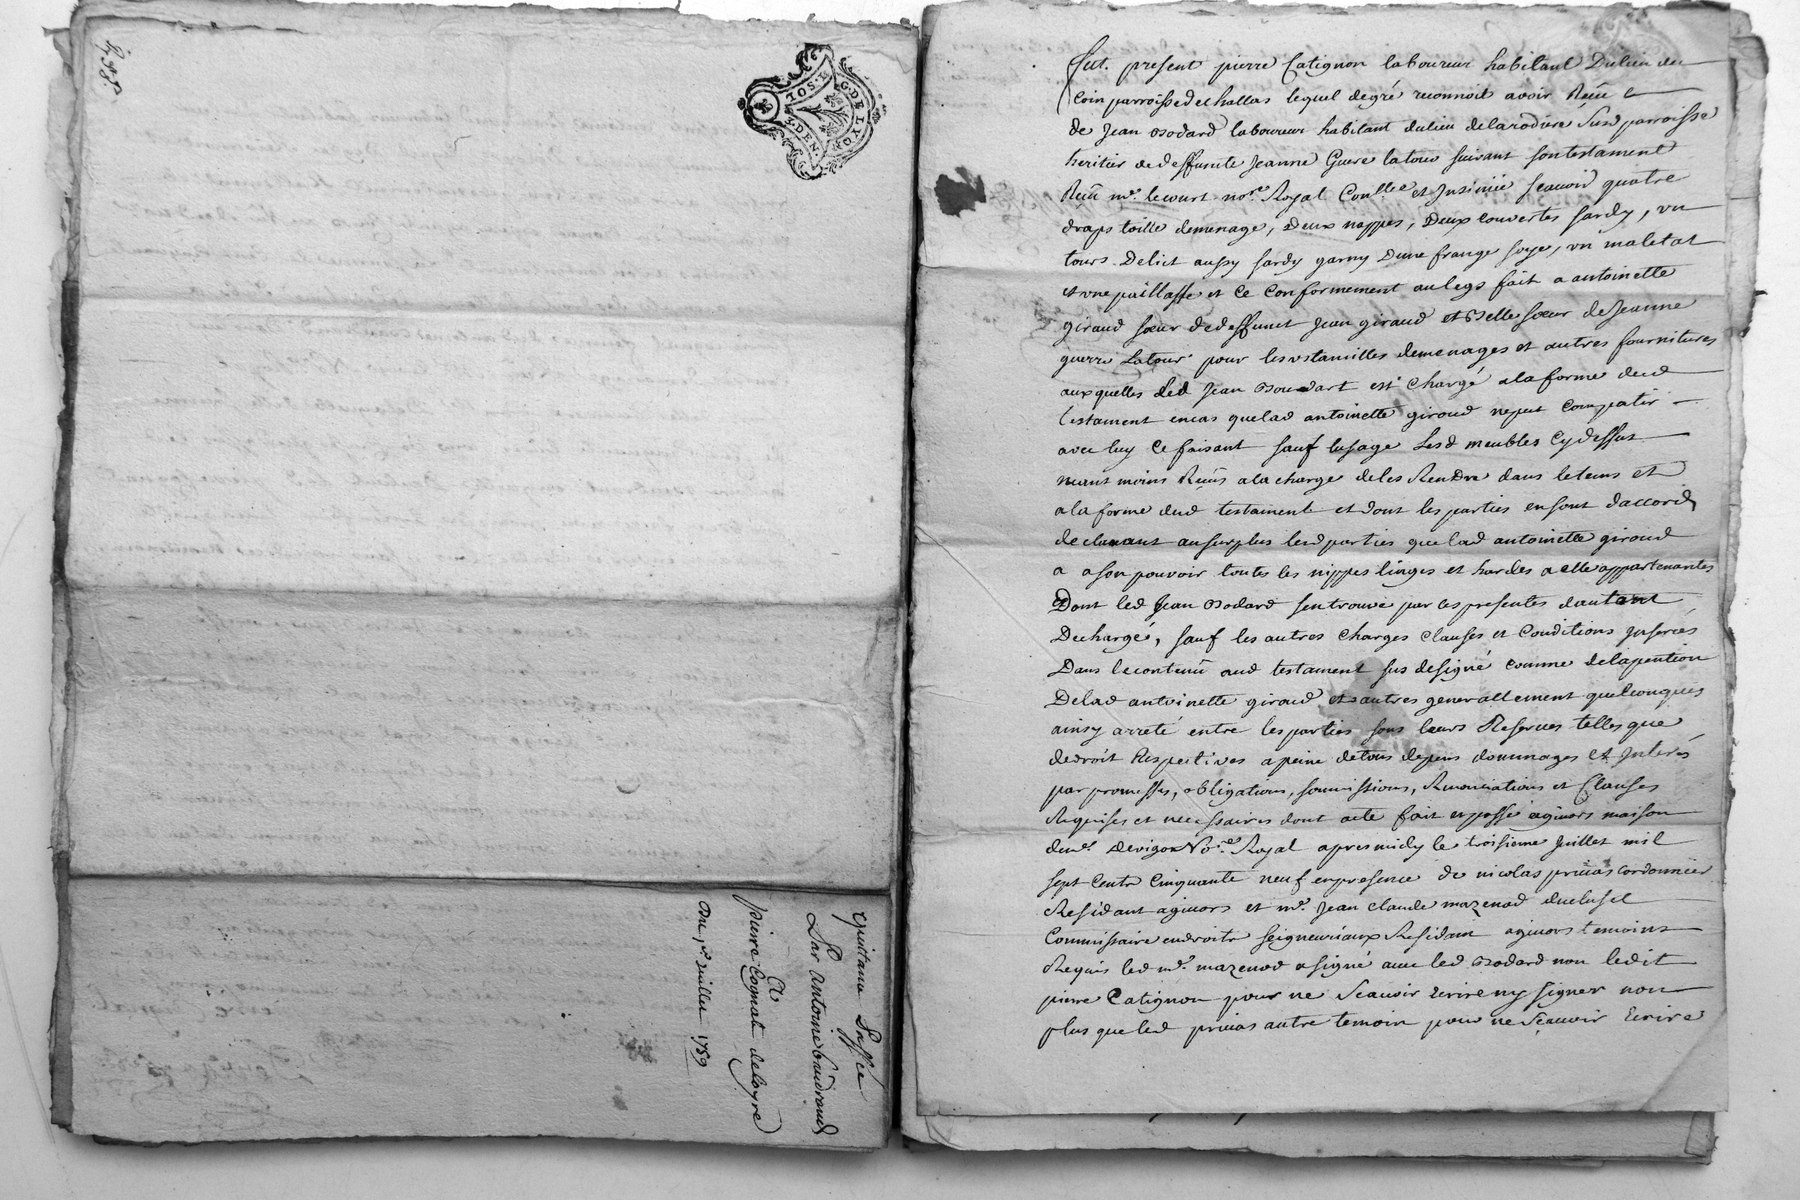 G. DE LYON
IOS. E
3. DEN.
quittance Passée
Par Antoine baudrand
A
pierre Cognat deloyre
Du 1er Juillet 1759
Fut present pierre Catignon laboureur habitant Dulieu de
Coin parroisse de challas lequel degré reconnoit avoir Reçû
de Jean Bodard laboureur habitant dulieu de larodiere Susd parroisse
heritier dedeffunte Jeanne Guere latour suivant sontestament
Reçû me. lecourt nore. Royal Conllé et Insinüé Scavoir quatre
draps toille demenage, Deux nappes, Deux couvertes sardy, un
tours Delict aussy sardy garny Dune frange soye, un maletat
et une paillasse et Ce Conformement aulegs fait a antoinette
giraud sœur dedeffunct Jean giraud et Belle sœur de Jeanne
guerre Latour pour les ustamilles demenages et autres fournitures
auxquelles Led Jean Boudart est chargé alaforme dud
testament encas quelad antoinette giroud neput Compatir
avec luy Ce faisant sauf lusage Lesd meubles Cydessus
neant moins Reçûs alacharge deles Rendre dans letems et
alaforme dud testament et dont les parties ensont daccord
declarant ausurplus lesd parties quelad antoinette giroud
a asonpouvoir toutes les nippes linges et hardes a elle appartenantes
Dont led Jean Bodard sentrouve par les presentes dautant
Dechargé, sauf les autres charges clauses et Conditions Inserées
Dans lecontenû aud testament sus designé comme delapention
Delad antoinette giroud et autres generallement quelconques
ainsy arreté entre lesparties sous leurs Reserves telles que
dedroit Respectives apeine detous depens dommages et Interés
par promesses, obligations, soumissions, Renonciations et Clauses
Requises et necessaires dont acte fait et passé aginors maison
deme. Devigon Nore. Royal apres midy le troisieme Juillet mil
sept Cents Cinquante neuf enpresence de nicolas privas cordonnier
Residant aginors et me. Jean Claude mazenod duclusel
Commissaire endroits seigneuriaux Residant aginors temoins
Requis led me. mazenod asigné avec led Bodard non ledit
pierre Catignon pour ne Scavoir Ecrire ny signer non
plus que led privas autre temoin pour ne Scavoir Ecrire